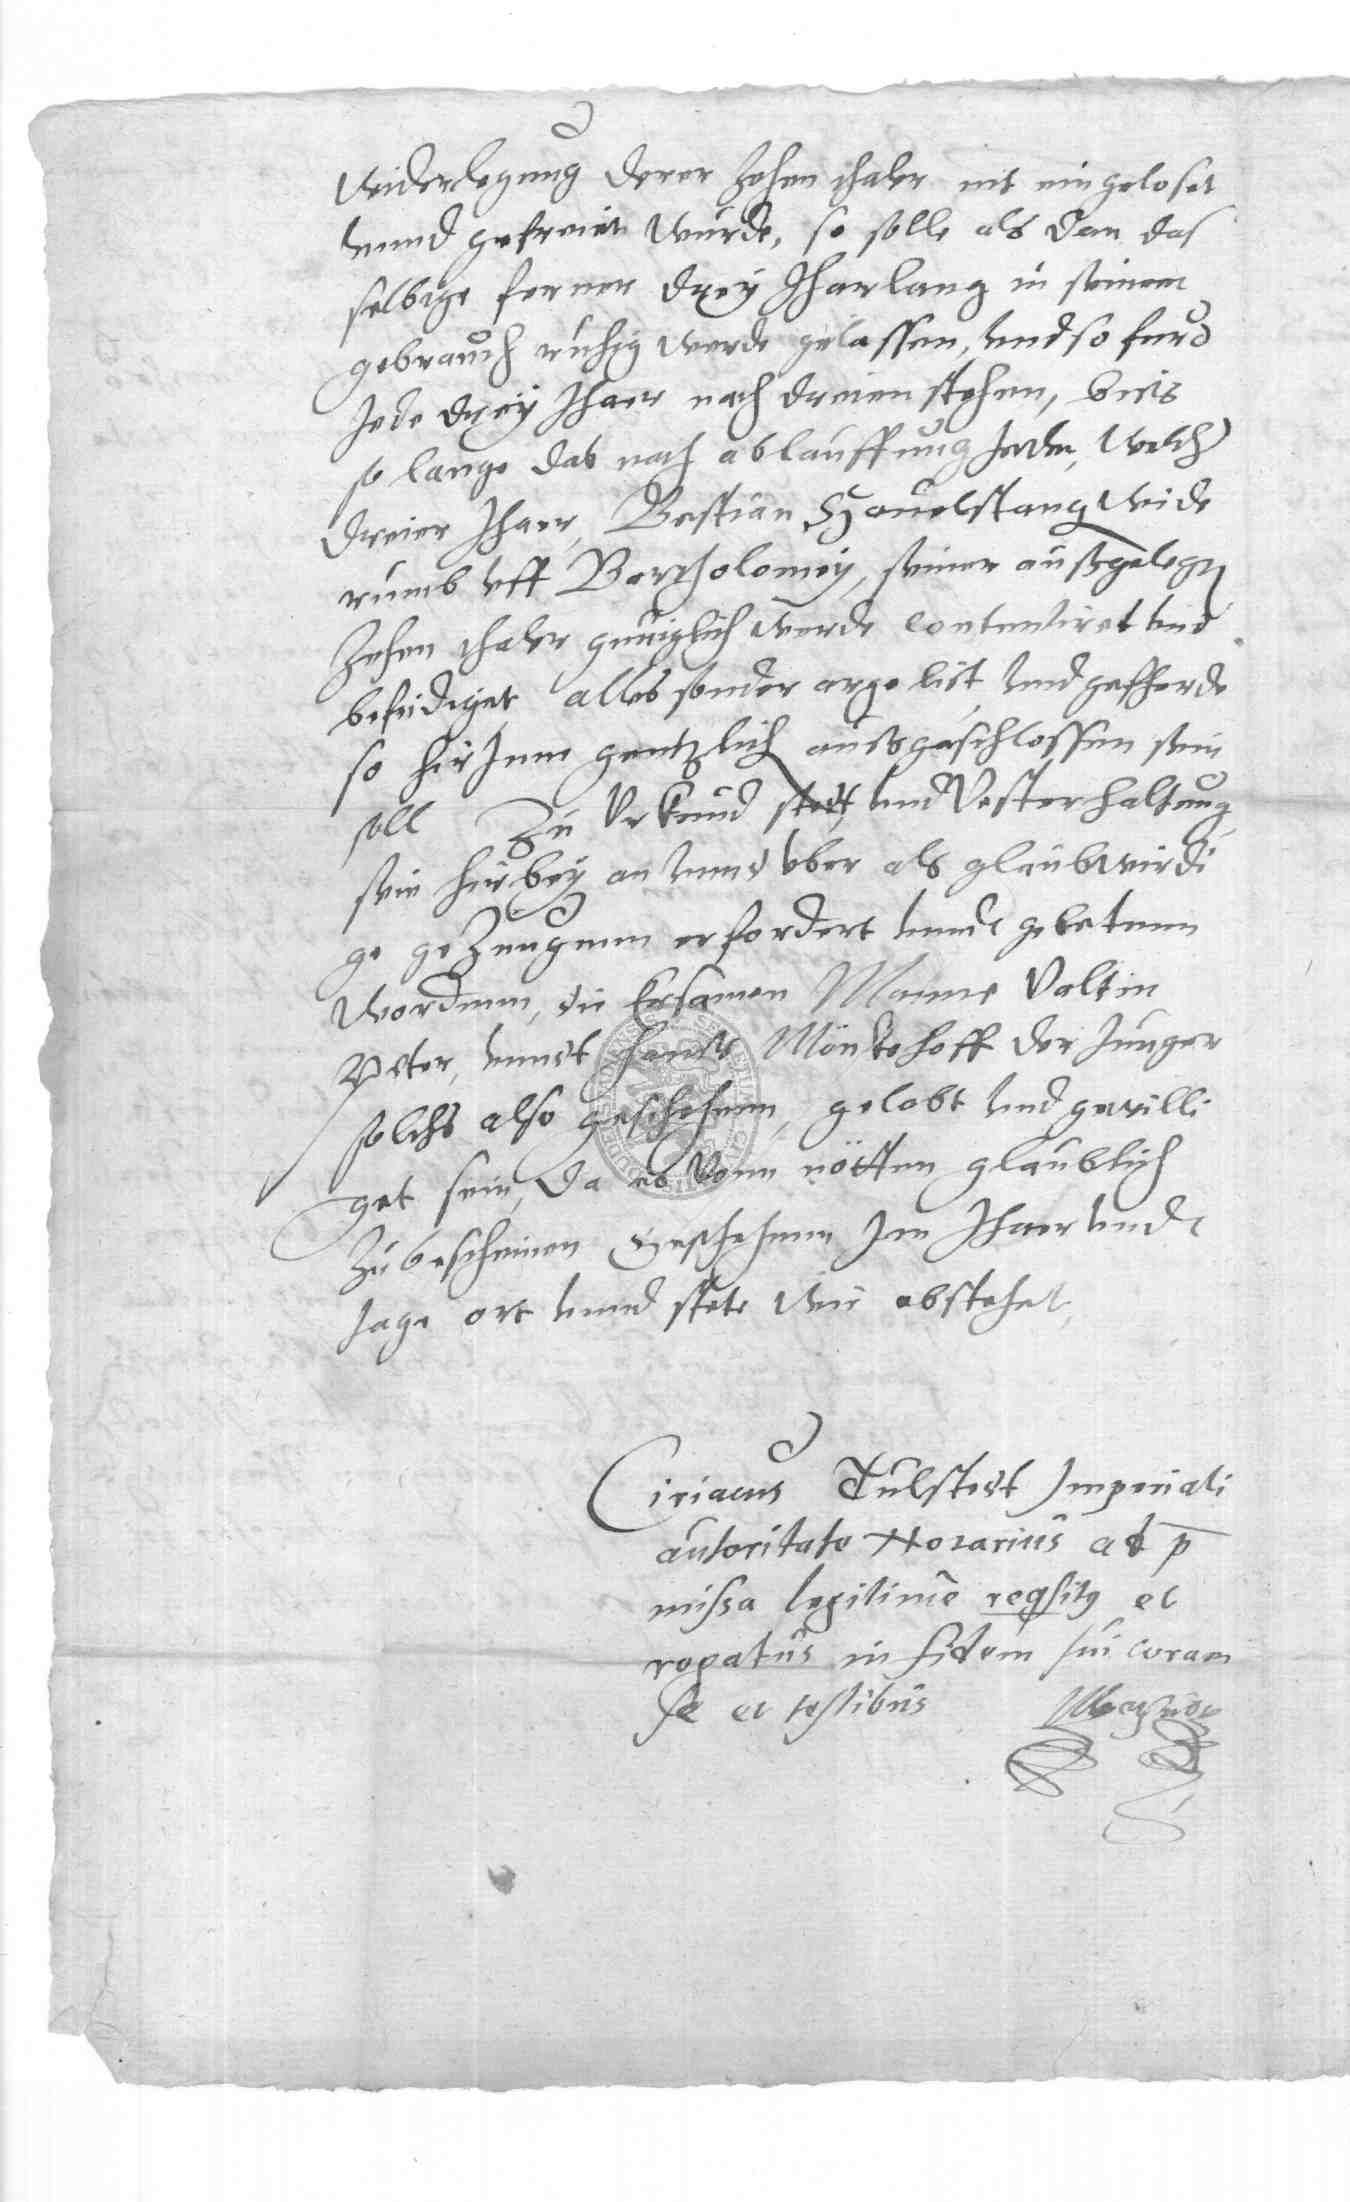 widerlegung derer Zehen thaler nit eingeloset
vnnd gefreiet wurde, so solle als dan das
selbige ferner drey Jharlang in seinem
gebrauch ruhig werde gelassen, vnd so furd
Jede drey Jhaer nach dreien stehen, bies
so lange das nach ablauffung Jeder, welch
dreier Jhaer, Bastian Hauelstang wide
rumb vff Bartholomey, seiner außgelegten
Zehen thaler gnuglich werde contentiret vnd
befridiget alles sonder arge list vnd gefherde
so hir Inne gentzlich aussgeschlossen sein
soll Zu Vrkund stedt vnd Vesterhaltung
sein hirbey an vnnd vber als glaubwirdi
ge geZeugenn erfordert vnndt gebetenn
wordenn, die Ersamen Manne Valtin
Peter, vnndt Hanss Mönkehoff der Junger
solchs also geschehenn, gelobt vnd gewilli
get sein, Da es Vonn nötten glaublich
Zubescheinen Geschehenn Im Jhaer vnndt
tage ort vnnd stete wie obstehet,
Ciriacus Tulstedt Imperiali
autoritate Notarius ad p
missa legitime reqsitus et
rogatus in fidem sui coram
se et testibus